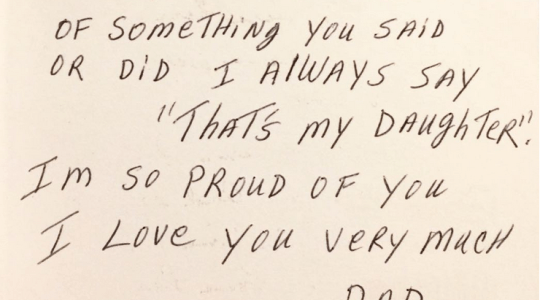 OF SOMETHING YOU SAID
OR DID I ALWAYS SAY
"THAT'S MY DAUGHTER".
IM SO PROUD OF YOU
I LOVE YOU VERY MUCH
DAD